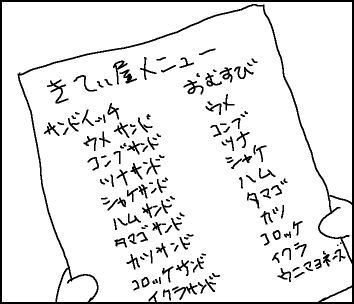 きてぃ屋メニュー
サンドイッチ
ウメサンド
コンブサンド
ツナサンド
シャケサンド
ハムサンド
タマゴサンド
カツサンド
コロッケサンド
イクラサンド
おむすび
ウメ
コンブ
ツナ
シャケ
ハム
タマゴ
カツ
コロッケ
イクラ
ウニマヨネーズ